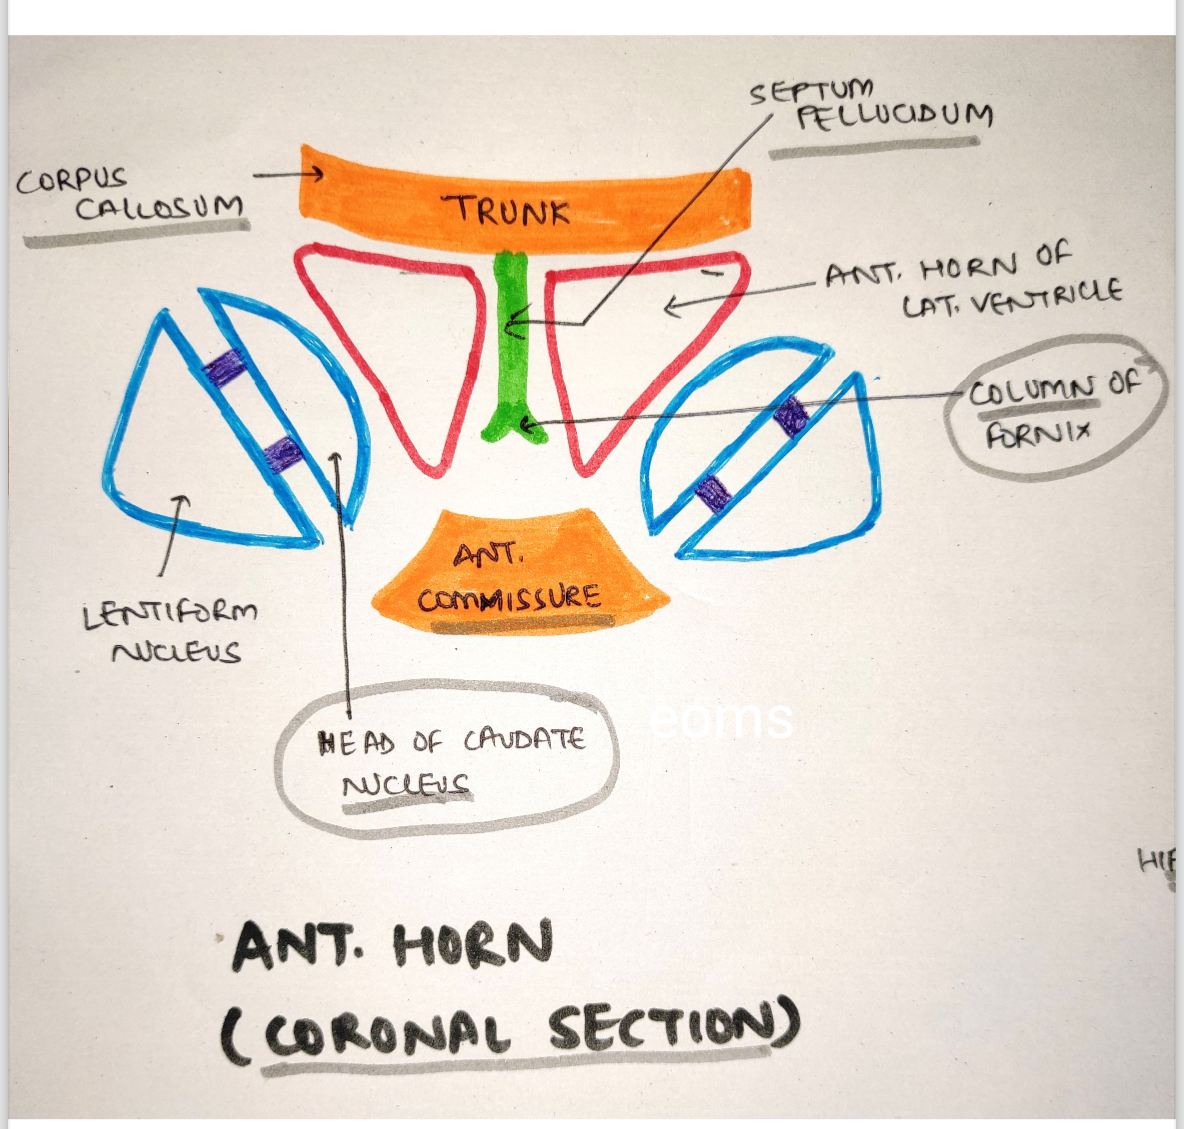 SEPTUM
PELLUCIDUM
CORPUS
CALLOSUM
TRUNK
ANT. HORN OF
LAT. VENTRICLE
COLUMN OF
FORNIX
ANT.
COMMISSURE
LENTIFORM
NUCLEUS
eoms
HEAD OF CAUDATE
NUCLEUS
ANT. HORN
(CORONAL SECTION)